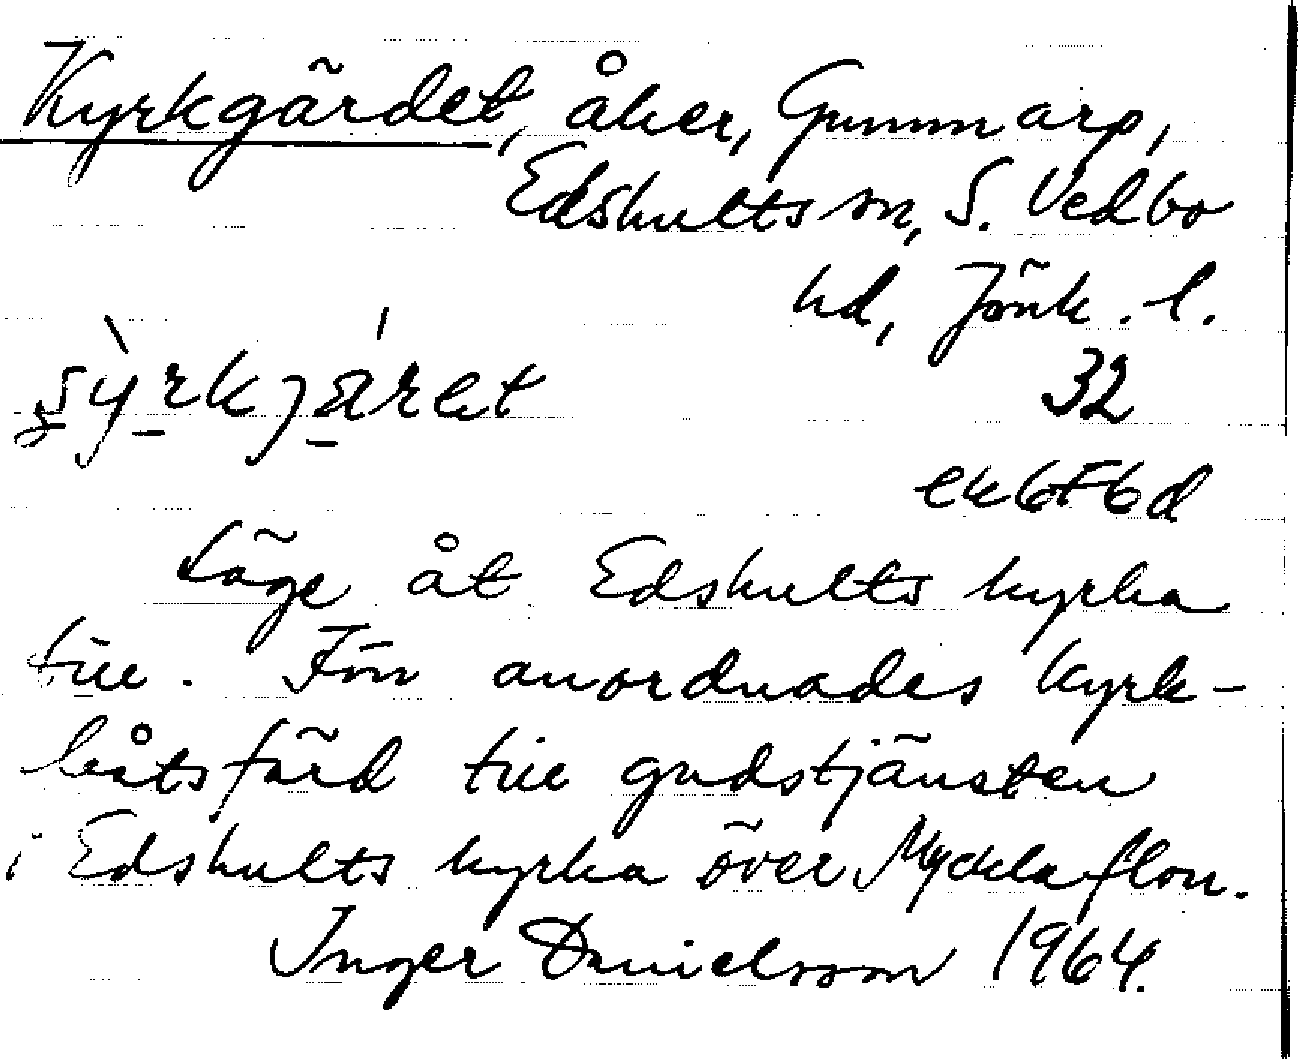 Kyrkgärdet, åker, Gummarp,
Edshults sn, S. Vedbo
hd, Jönk. l.
ʂỳrkjä́ret 32
ek6F6d
Läge åt Edshults kyrka
till. Förr anordnades kyrk-
båtsfärd till gudstjänsten
i Edshults kyrka över Myckla flon.
Inger Danielsson 1964.